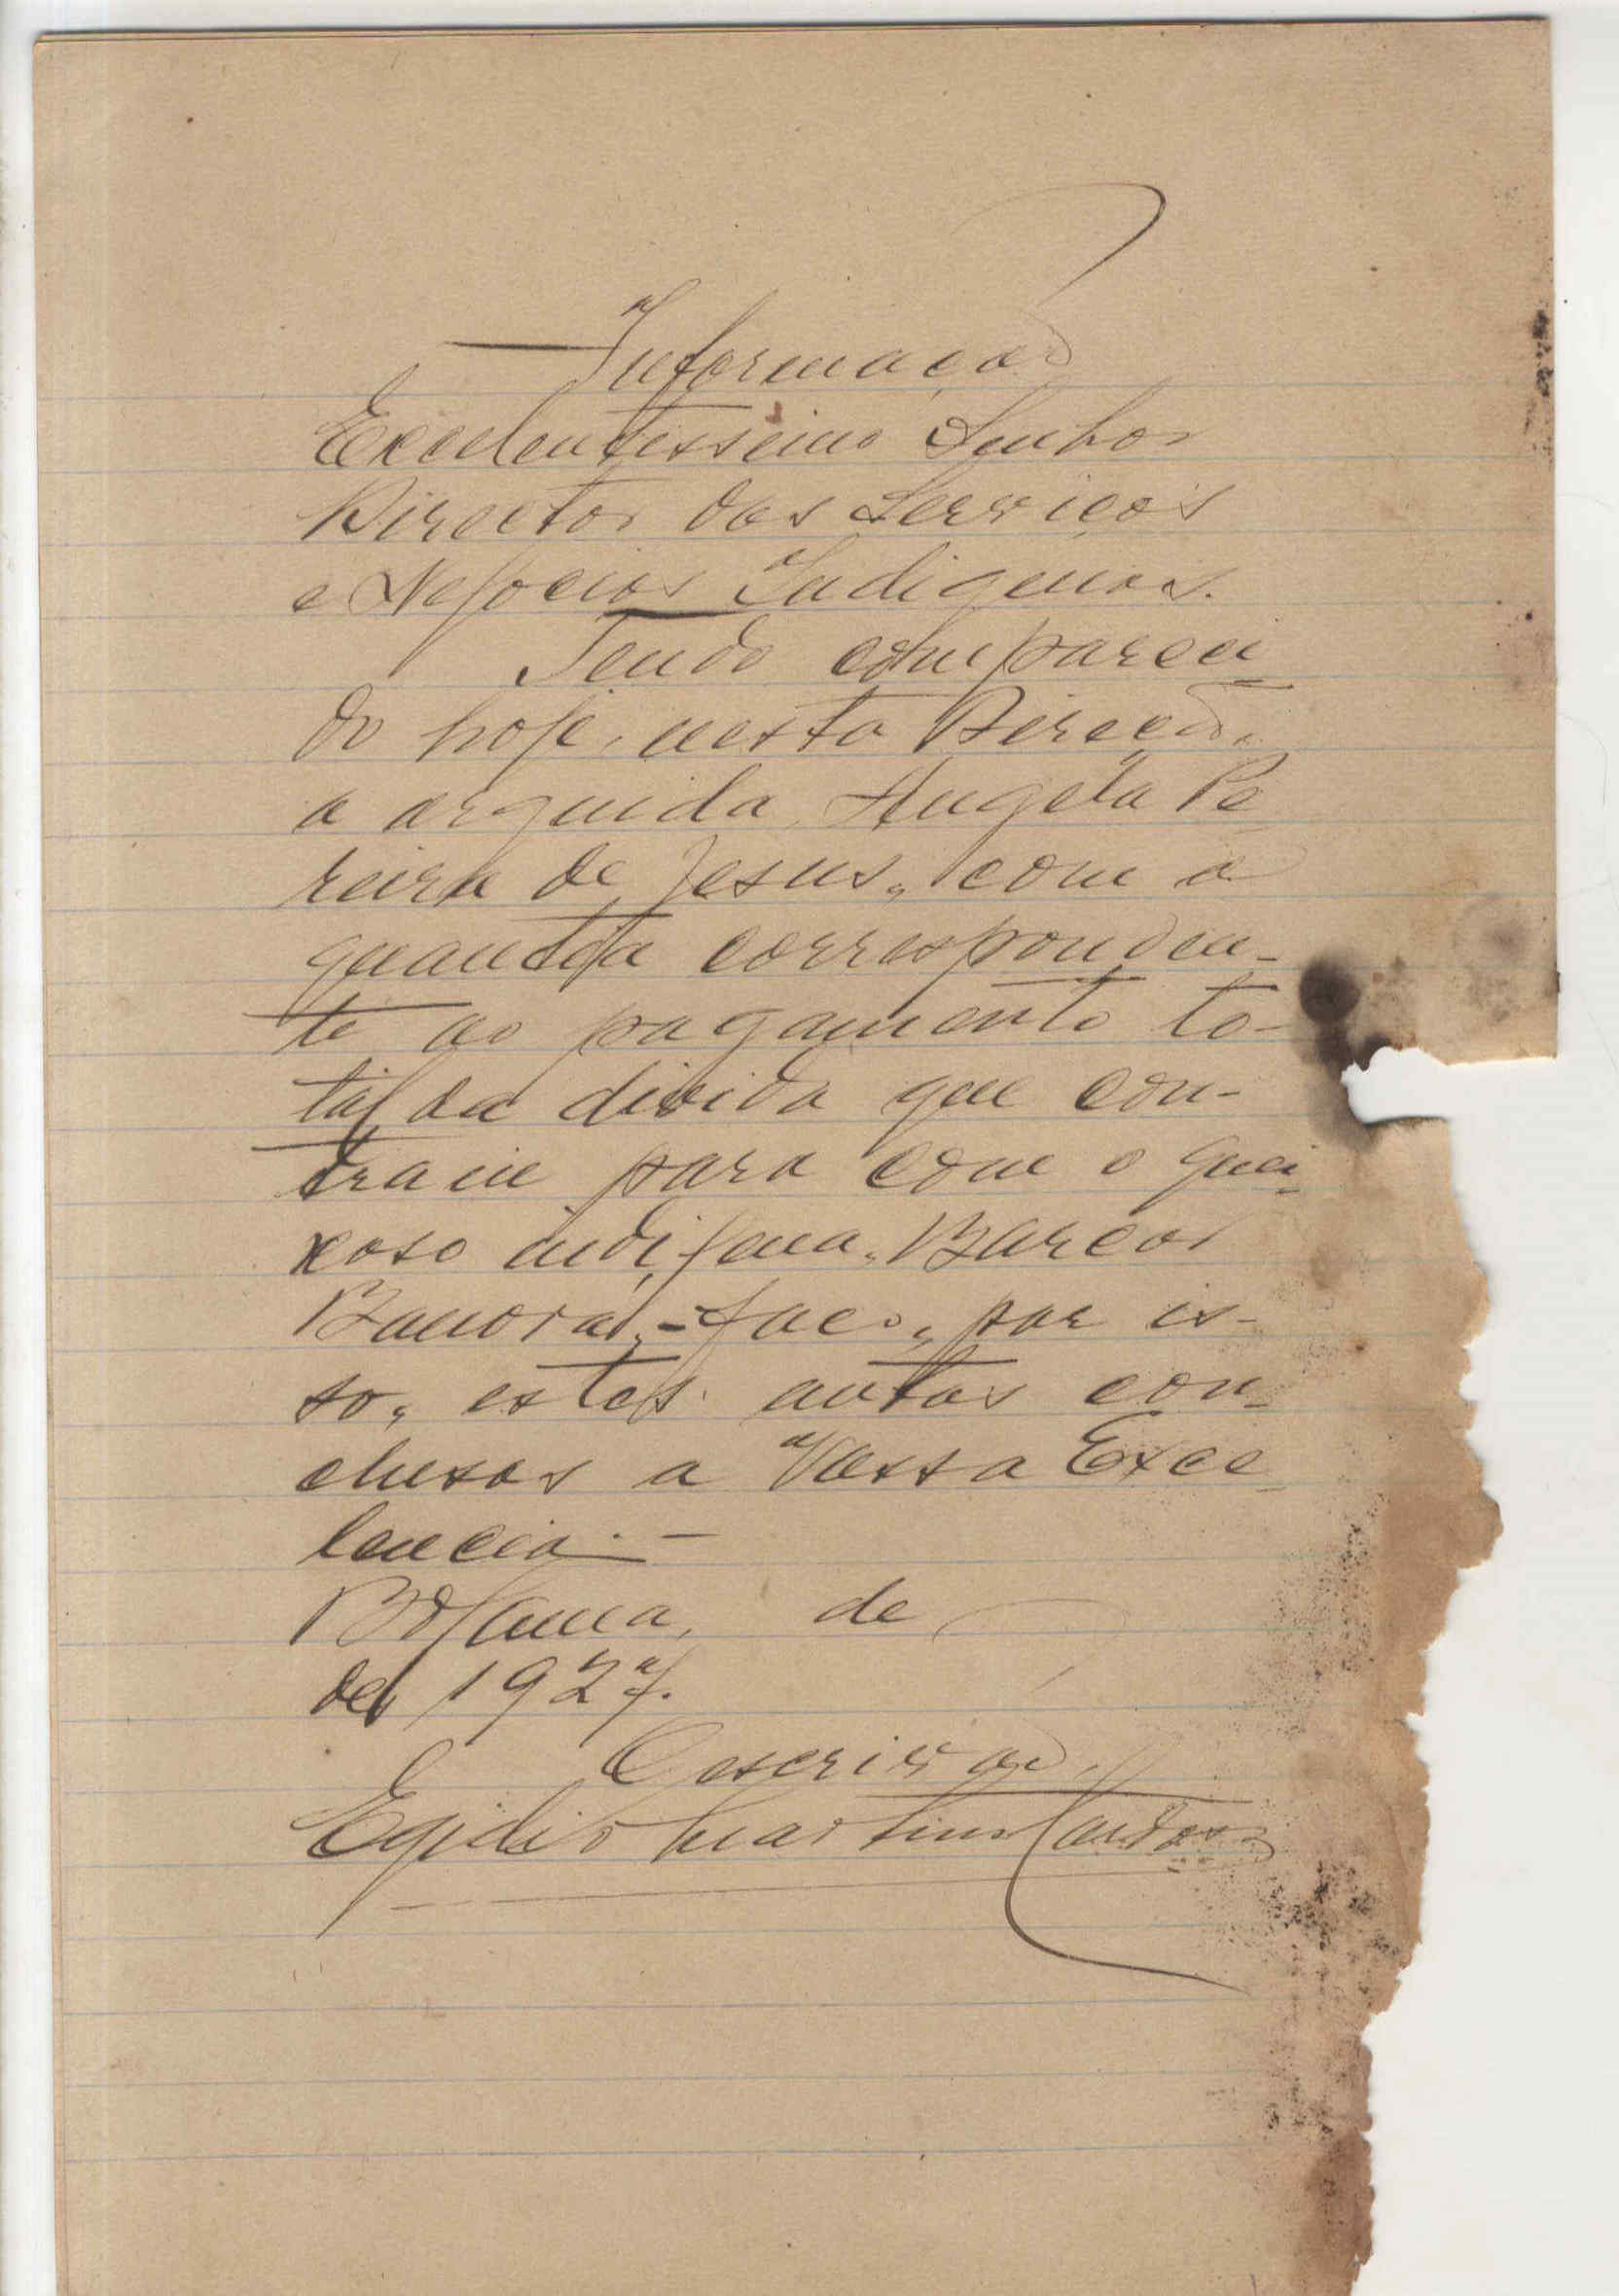 Informação
Excelentissimo Senhor
Director dos Serviços
e Negocios Indigenas.
Tendo compareci
do hoje, nesta Direcção,
a arguida, Angela Pe
reira de Jesus, com a
quantia corresponden-
te ao pagamento to-
tal da divida que con-
traiu para com o quei
xoso indigena,
faço, por is-
so, estes autos con-
clusos a Vossa Exce
lencia.-
Bolama, de
de 1927.
O escrivão,
Egidio Martins